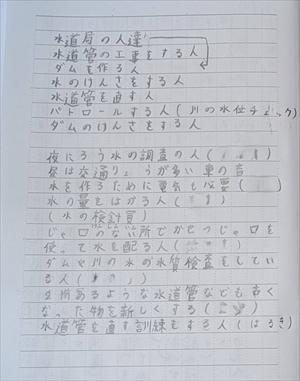 水道局の人達
水道管の工事をする人
ダムを作る人
水のけんさをする人
水道管を直す人
パトロールする人(川の水位チェック)
ダムのけんさをする人
夜にろう水の調査の人(
昼は交通りょうが多い車の音
水を作るために電気も必要(
水の量をはかる人(
(水の検針員)
じゃ口のない所でかせつじゃ口を
使って水を配る人(
ダムや川の水の水質検査をしてい
る人(
あるような水道管なども古く
なった物を新しくする(
水道管を直す訓練をする人(はるき)